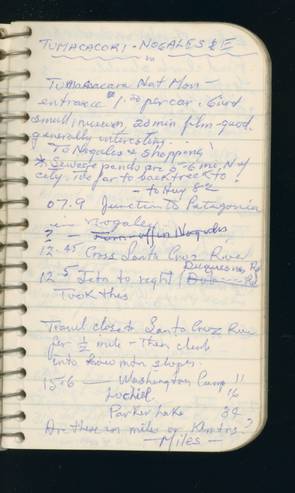 TUMACACORI - NOGALES & E
Tumacacori Nat Mon -
entrance $1.00 per car. Good
small museum, 20 min film - good.
generally interesting..
To Nogales & Shopping!
* Sewage ponds are 5-6 mi, N of
city. too far to backtrack to
- to Hwy 82
07.9 Junction to Patagonia
in Nogales
? - Turn off in Nogales
12.45 Cross Santa Cruz River
12.5 Jctn to right / Duquesne Rd
Took this
Travel close to Santa Cruz River
for ½ mile - Then climb
into low mtn slopes.
15.6 — Washington Camp 11
Lochiel 16
Parker Lake 34
Are these in miles or Klmtrs?
- Miles -